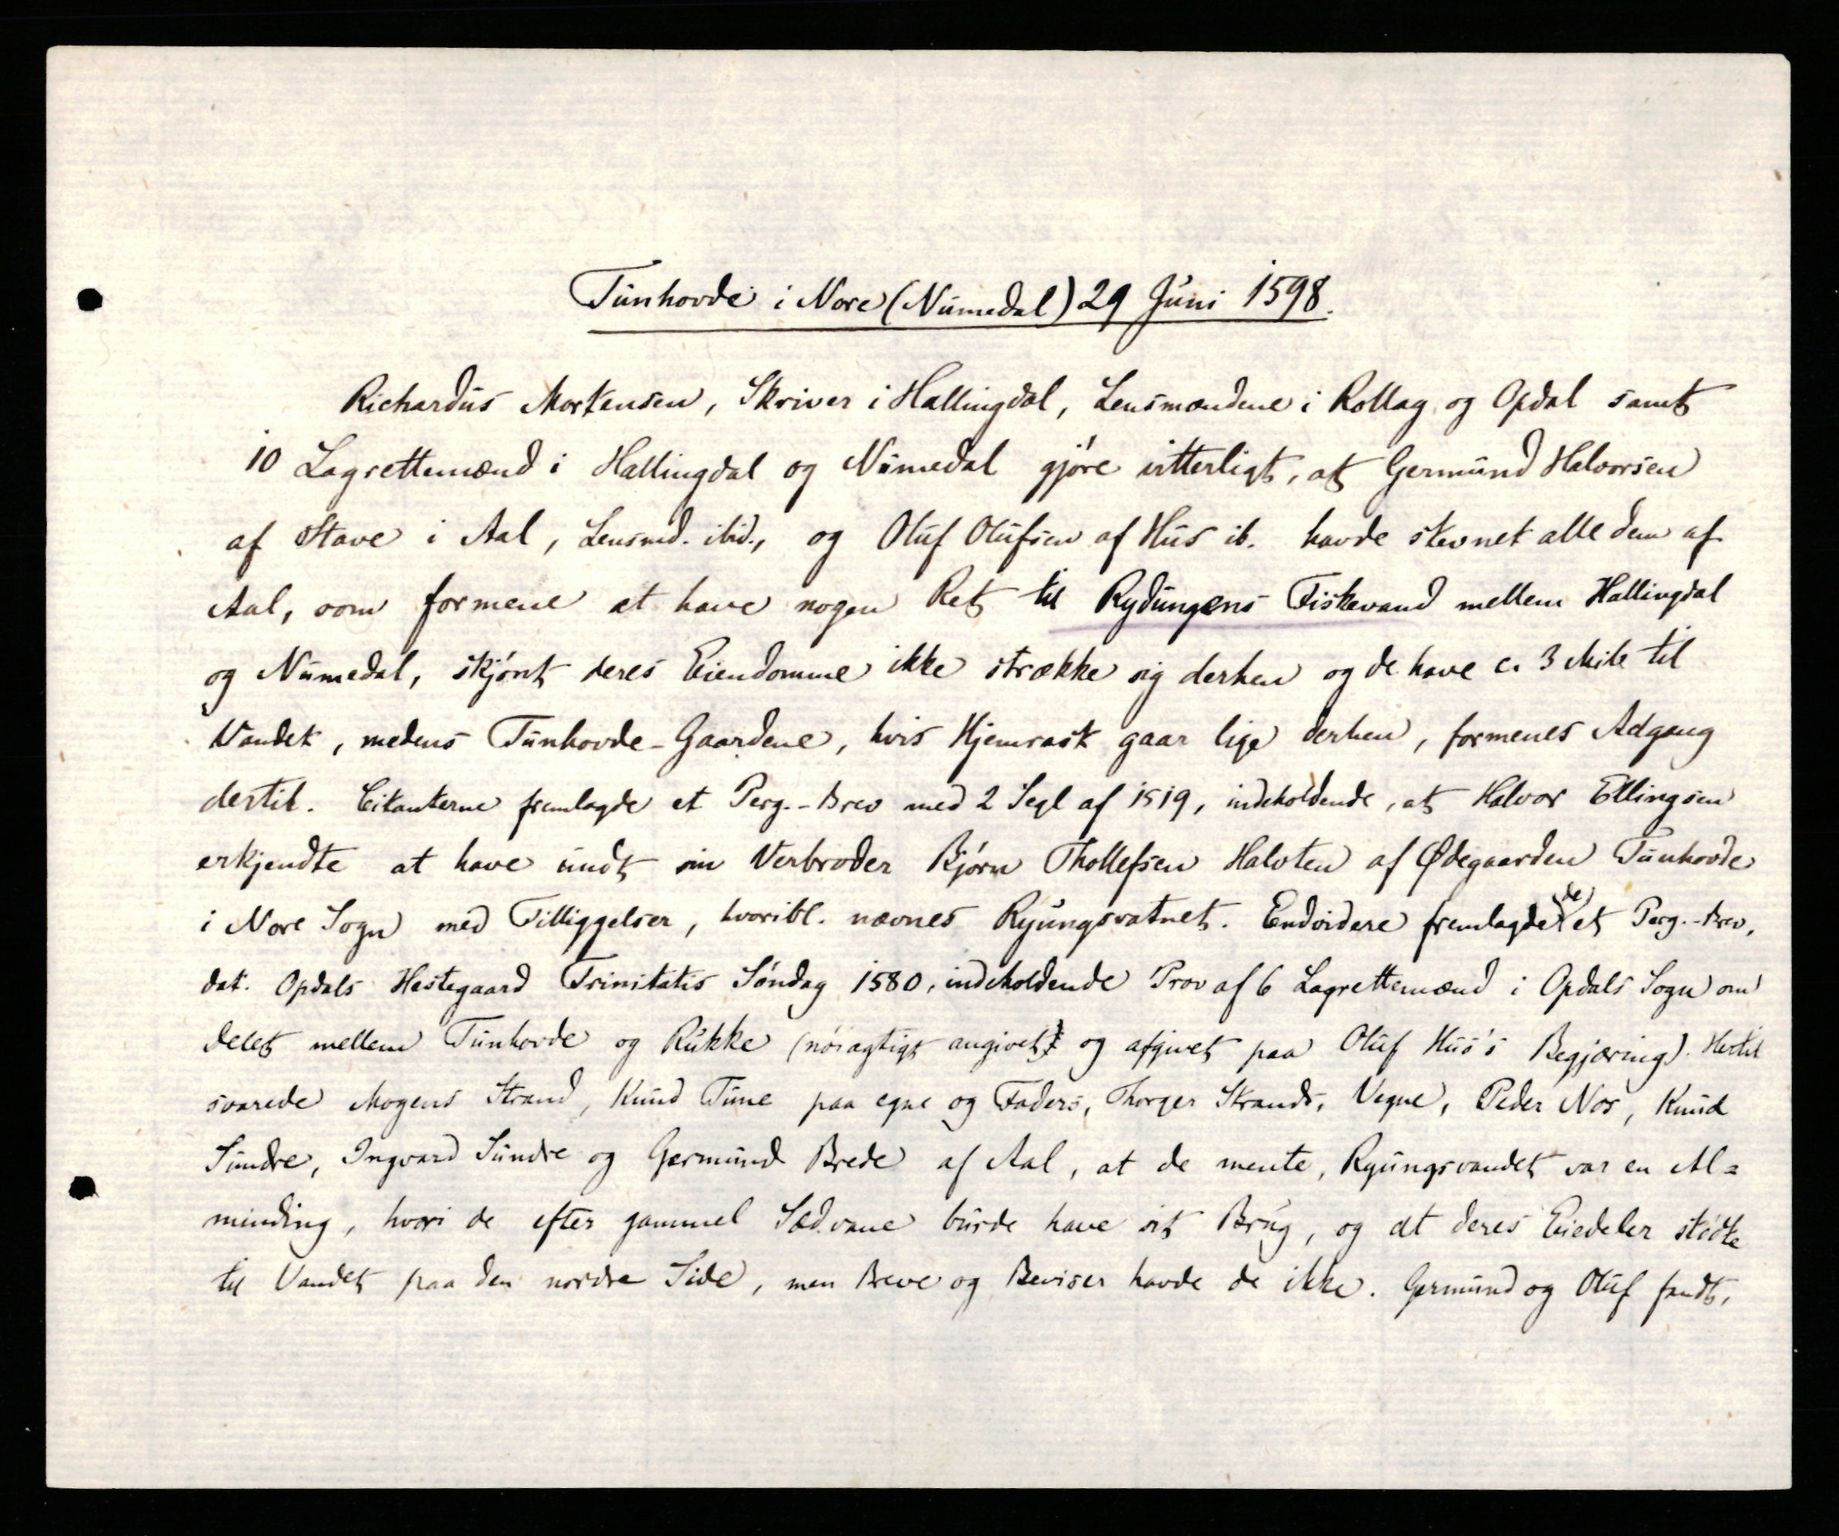 Tunhovde i Nore (Numedal) 29 Juni 1598.
Richardus Mortensen, Skriver i Hallingdal, Lensmændene i Rollag og Opdal samt
10 Lagrettemænd i Hallingdal og Numedal gjöre vitterligt, at Germund Halvorsen
af Stave i Aal, Lensmd. ibid., og Oluf Olufsen af Hus ib. havde stevnet alle dem af
Aal, som formene at have nogen Ret til Rydungens Fiskevand mellem Hallingdal
og Numedal, skjönt deres Eiendomme ikke strække sig derhen og de have c. 3 Mile til
Vandet, medens Tunhovde-Gaardene, hvis Hjemrast gaar lige derhen, formenes Adgang
dertil. Citanterne fremlagde et Perg.-Brev med 2 Segl af 1519, indeholdende, at Halvor Ellingsen
erkjendte at have undt sin Verbroder Björn Thollefsen Halvten af Ødegaarden Tunhovde
i Nore Sogn med Tilliggelser, hvoribl. nævnes Ryungsvatnet. Endvidere fremlagde de et Perg.-Brev,
dat. Opdals Hestegaard Trinitatis Söndag 1580, indeholdende Prov af 6 Lagrettemænd i Opdals Sogn om
Delet mellem Tunhovde og Rukke (nöiagtigt angivet og afgivet paa Oluf Hus's Begjæring). Hertil
svarede Mogens Strand, Knud Tune paa egne og Faders, Thorger Strands, Vegne, Peder Nos, Knud
Sundre, Ingvard Sundre og Germund Brede af Aal, at de mente, Ryungsvandet var en Al=
minding, hvori de efter gammel Sædvane burde have sit Brug, og at deres Eiedeler stödte
til Vandet paa den nordre Side, men Breve og Beviser havde de ikke. Germund og Oluf fandt,